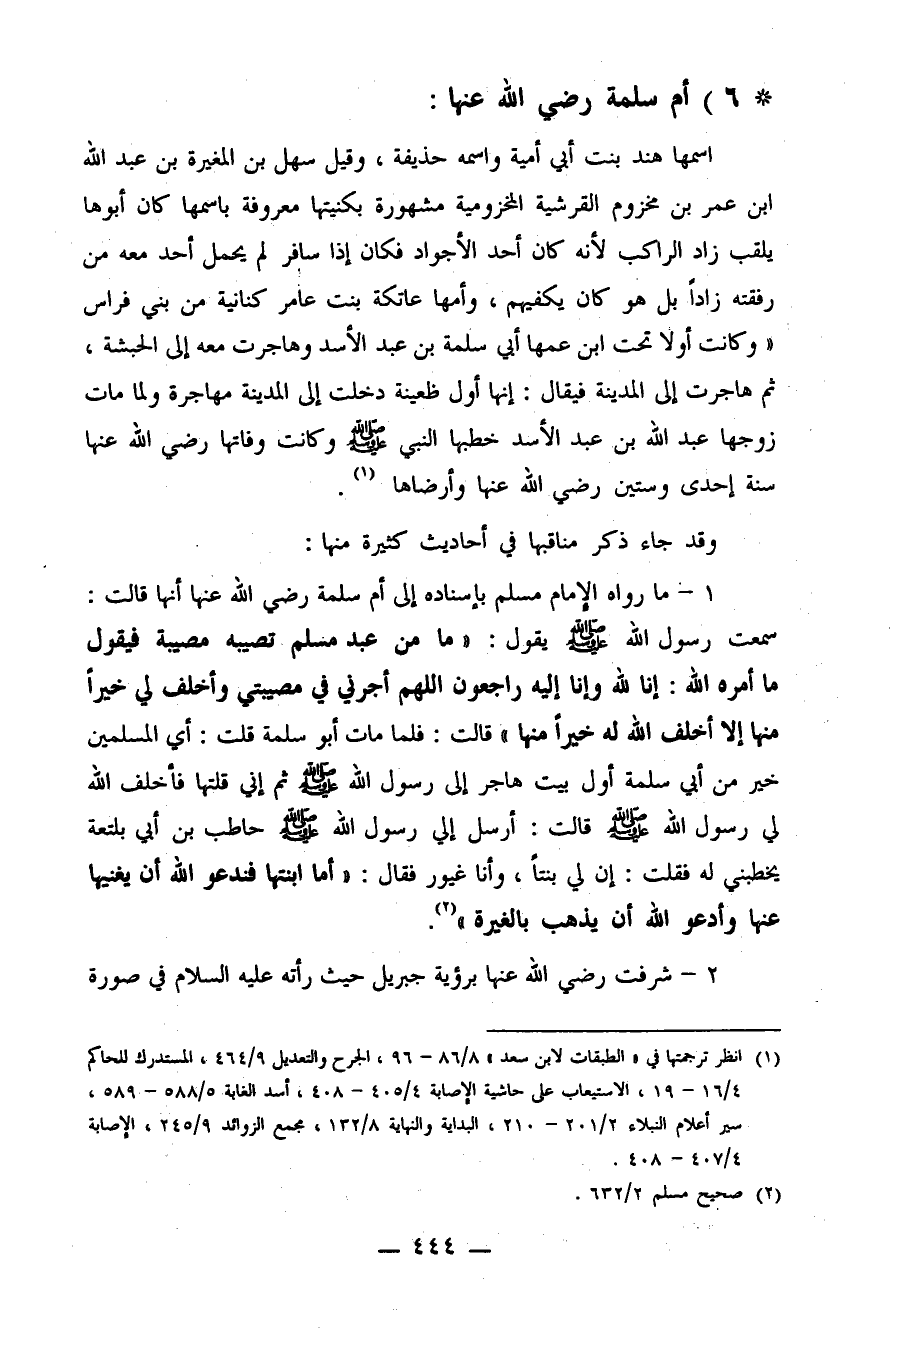 * ٦ ) أم سلمة رضي الله عنها :
اسمها هند بنت أبي أمية واسمه حذيفة ، وقيل سهل بن المغيرة بن عبد الله
ابن عمر بن مخزوم القرشية المخزومية مشهورة بكنيتها معروفة باسمها كان أبوها
يلقب زاد الراكب لأنه كان أحد الأجواد فكان إذا سافر لم يحمل أحد معه من
رفقته زاداً بل هو كان يكفيهم ، وأمها عاتكة بنت عامر كنانية من بني فراس
« وكانت أولا تحت ابن عمها أبي سلمة بن عبد الأسد وهاجرت معه إلى الحبشة ،
ثم هاجرت إلى المدينة فيقال : إنها أول ظعينة دخلت إلى المدينة مهاجرة ولما مات
زوجها عبد الله بن عبد الأسد خطبها النبي ﷺ وكانت وفاتها رضي الله عنها
سنة إحدى وستين رضي الله عنها وأرضاها (١) .
وقد جاء ذكر مناقبها في أحاديث كثيرة منها :
١ – ما رواه الإمام مسلم بإسناده إلى أم سلمة رضي الله عنها أنها قالت :
سمعت رسول الله ﷺ يقول : « ما من عبد مسلم تصيبه مصيبة فيقول
ما أمره الله : إنا لله وإنا إليه راجعون اللهم أجرني في مصيبتي وأخلف لي خيراً
منها إلا أخلف الله له خيراً منها » قالت : فلما مات أبو سلمة قلت : أي المسلمين
خير من أبي سلمة أول بيت هاجر إلى رسول الله ﷺ ثم إني قلتها فأخلف الله
لي رسول الله ﷺ قالت : أرسل إلي رسول الله ﷺ حاطب بن أبي بلتعة
يخطبني له فقلت : إن لي بنتاً ، وأنا غيور فقال : « أما ابنتها فندعو الله أن يغنيها
عنها وأدعو الله أن يذهب بالغيرة »(٢).
٢ – شرفت رضي الله عنها برؤية جبريل حيث رأته عليه السلام في صورة
(١) انظر ترجمتها في « الطبقات لابن سعد » ٨٦/٨ – ٩٦ ، الجرح والتعديل ٤٦٤/٩ ، المستدرك للحاكم
١٦/٤ – ١٩ ، الاستيعاب على حاشية الإصابة ٤٠٥/٤ – ٤٠٨ ، أسد الغابة ٥٨٨/٥ – ٥٨٩ ،
سير أعلام النبلاء ٢٠١/٢ – ٢١٠ ، البداية والنهاية ١٣٢/٨ ، مجمع الزوائد ٢٤٥/٩ ، الإصابة
٤٠٧/٤ – ٤٠٨ .
(٢) صحيح مسلم ٦٣٢/٢ .
— ٤٤٤ —